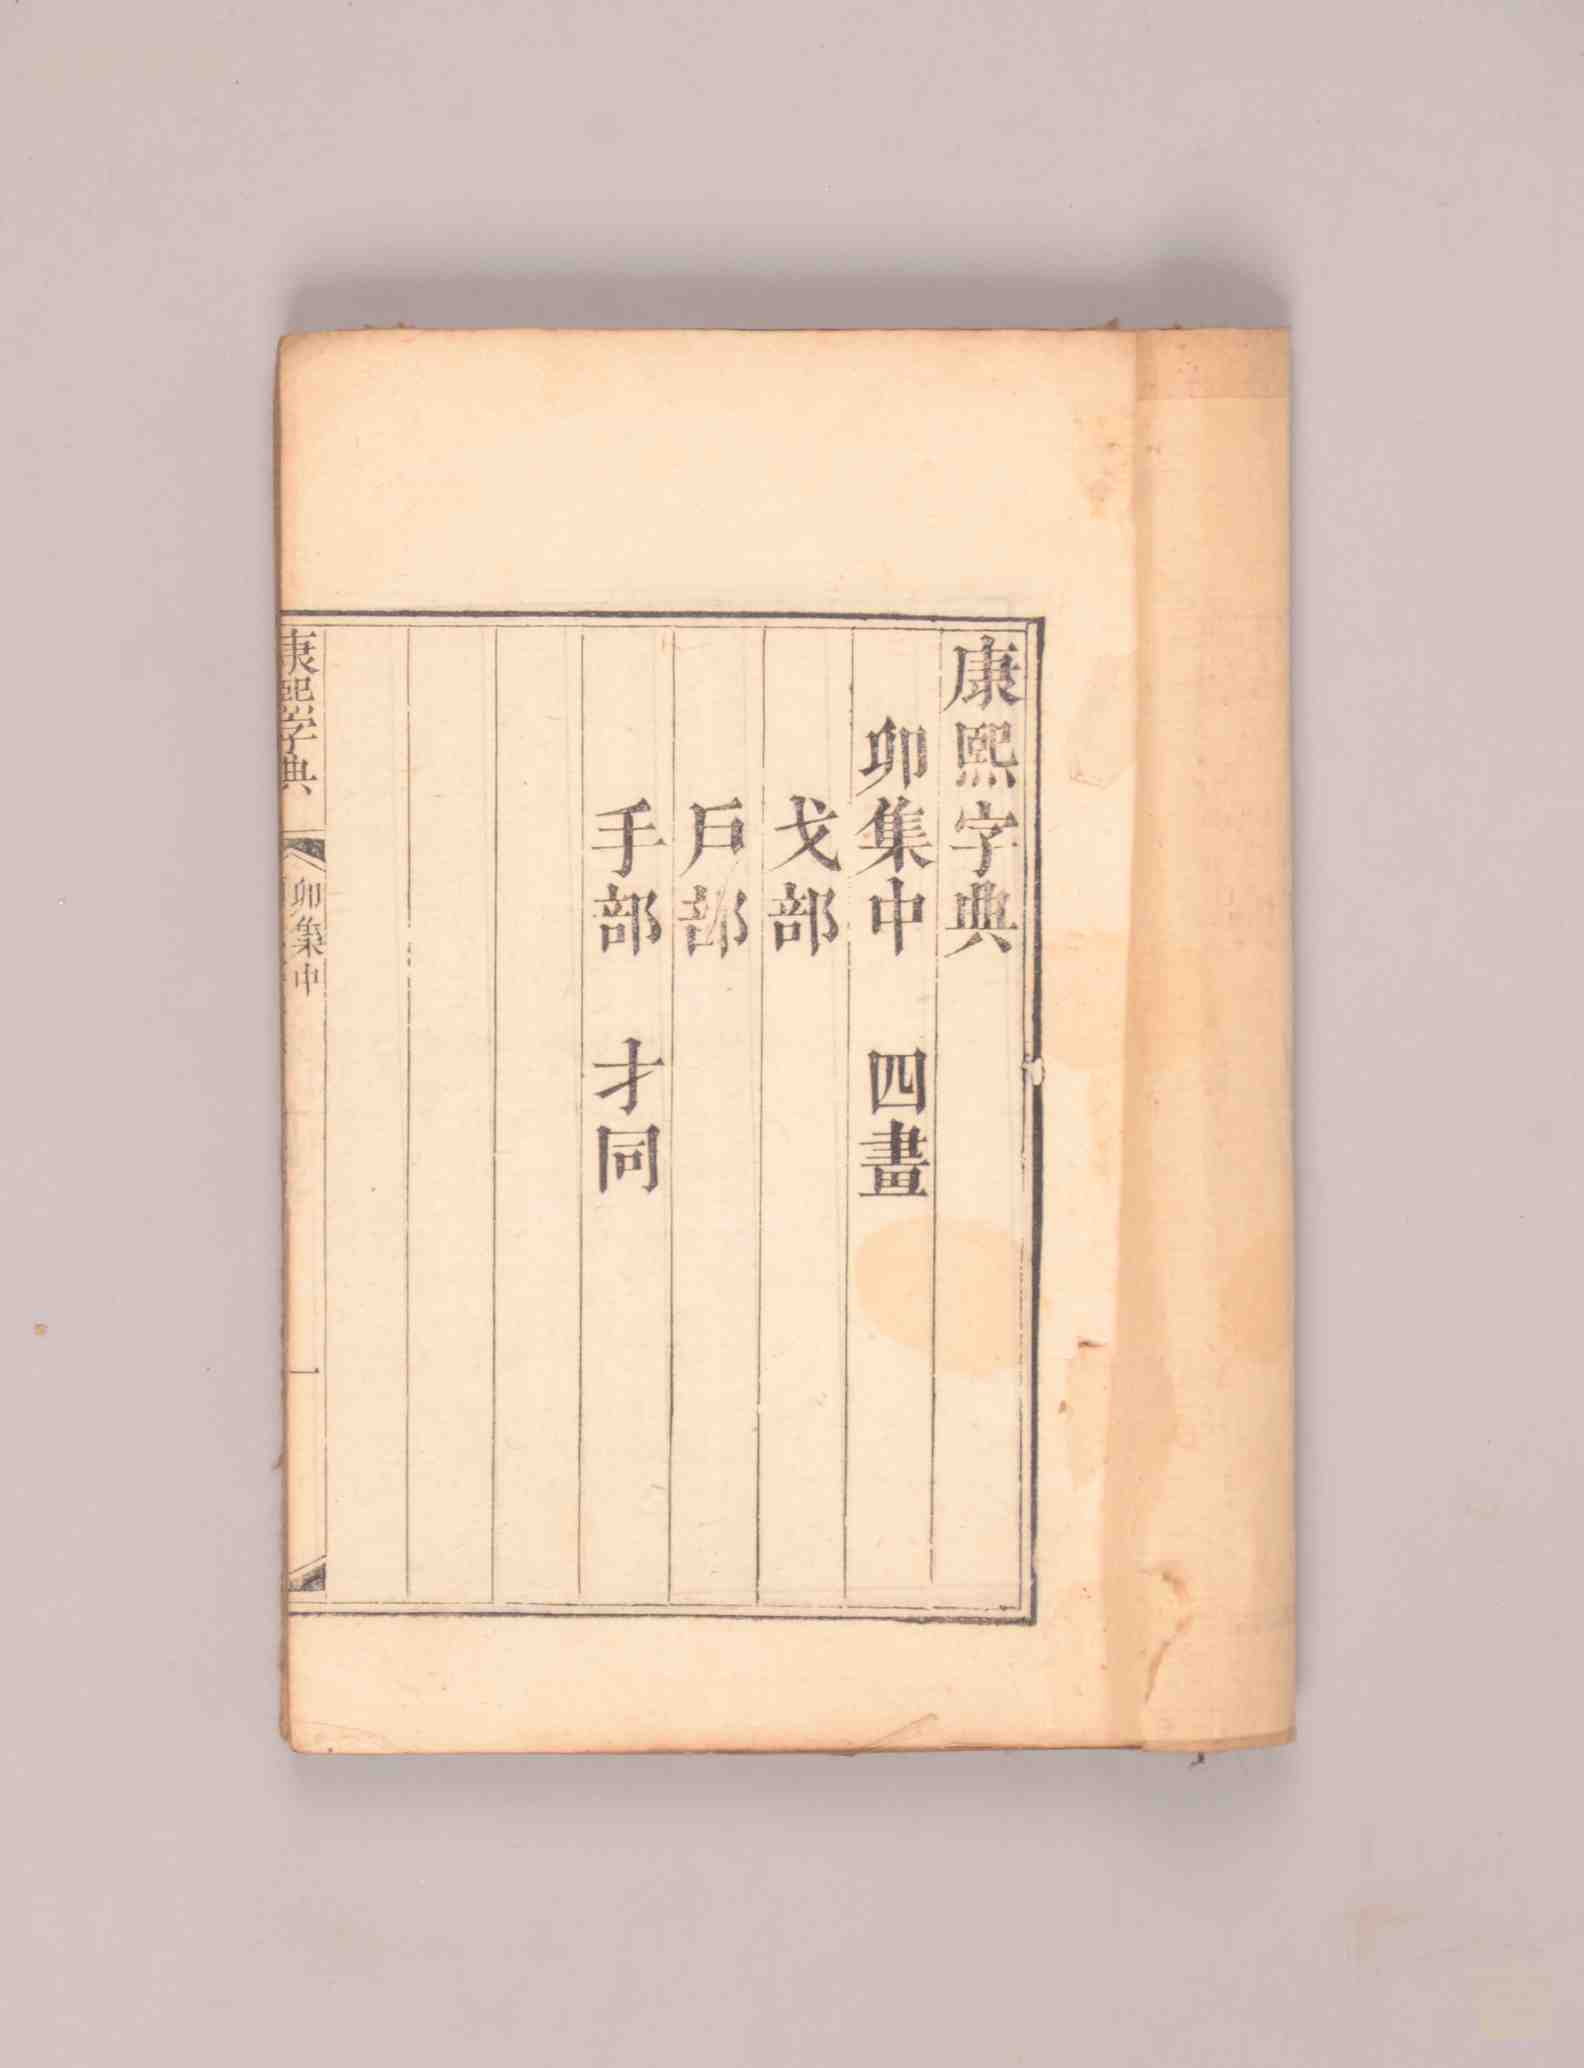 康熙字典
卯集中 四畫
戈部
戶部
手部 才同
康熙字典
卯集中
一